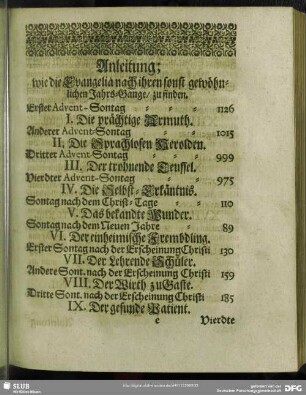 Anleitung;
wie die Evangelia nach ihren sonst gewöhn-
lichen Jahrs-Gange, zu finden.
Erster Advent-Sontag = = = 1126
I. Die prächtige Armuth.
Anderer Advent-Sontag = = 1015
II. Die Sprachlosen Herolden.
Dritter Advent-Sontag = = 999
III. Der trohnende Teuffel.
Vierdter Advent-Sontag = = 975
IV. Die Selbst-Erkäntnis.
Sontag nach dem Christ-Tage = = 110
V. Das bekandte Wunder.
Sontag nach dem Neuen Jahre = 89
VI. Der einheimische Frembdling.
Erster Sontag nach der Erscheinung Christi 130
VII. Der Lehrende Schüler.
Andere Sont. nach der Erscheinung Christi 159
VIII. Der Wirth zu Gaste.
Dritte Sont. nach der Erscheinung Christi 185
IX. Der gesunde Patient.
e Vierdte
SLUB
Wir führen Wissen.
gefördert von der
Deutschen Forschungsgemeinschaft
DFG